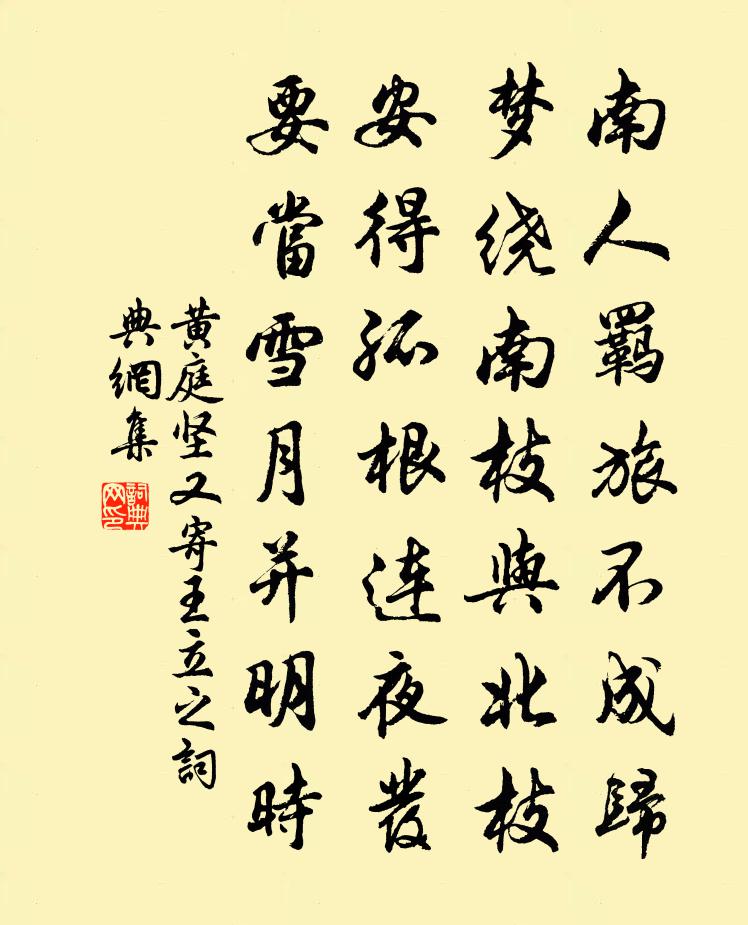 南人羁旅不成歸
梦绕南枝與北枝
安得孤根連夜發
要當雪月并明時
黄庭坚又寄王立之詞
典網集
詞典
网印